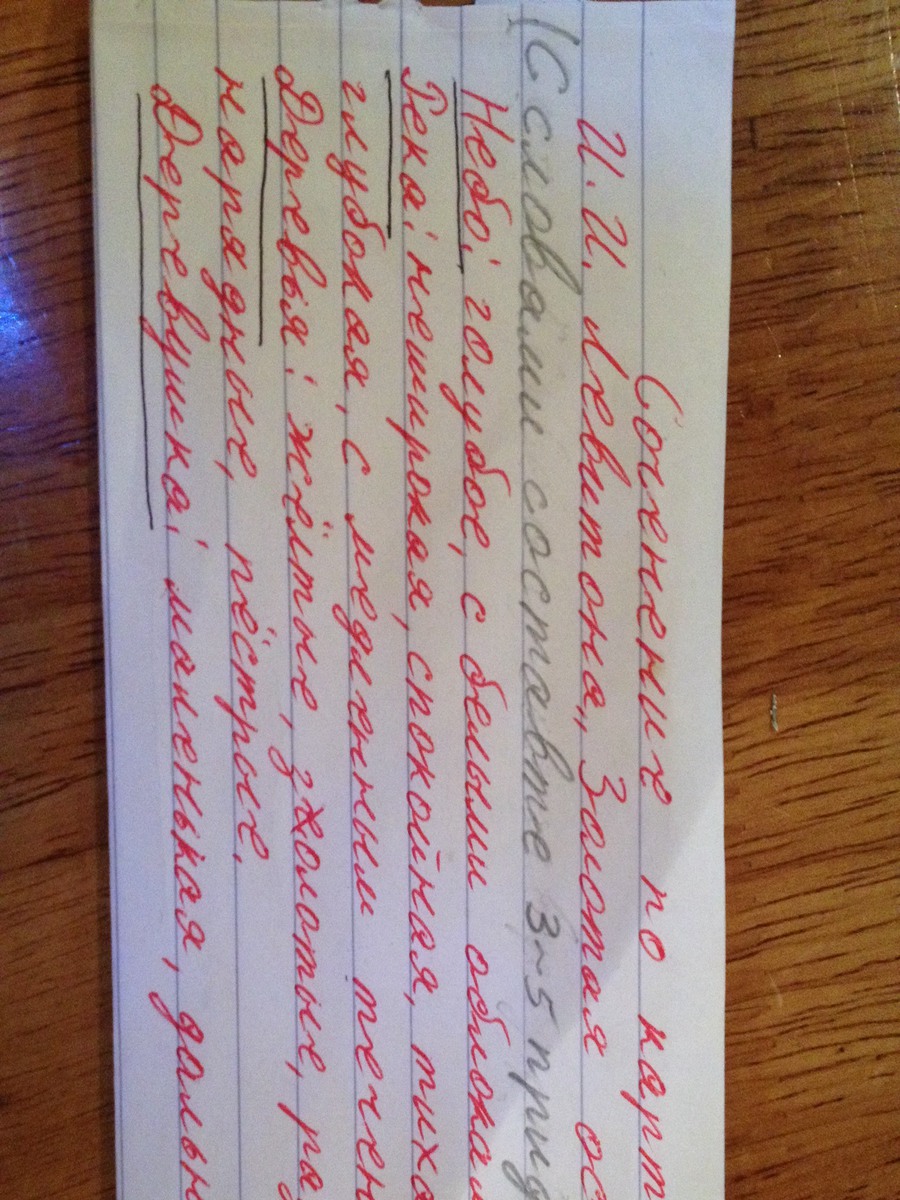 Сочинение по карт
И. И. Левитона „Золотая ос
(С словами составьте 3-5 пред
Небо: голубое, с белыми облокам
Река: неширокая, спокойная, тиха
глубокая, с медленным течен
Деревья: жёлтые, золотые, ра
нарядные, пёстрые.
Деревушка: маленькая, дальн